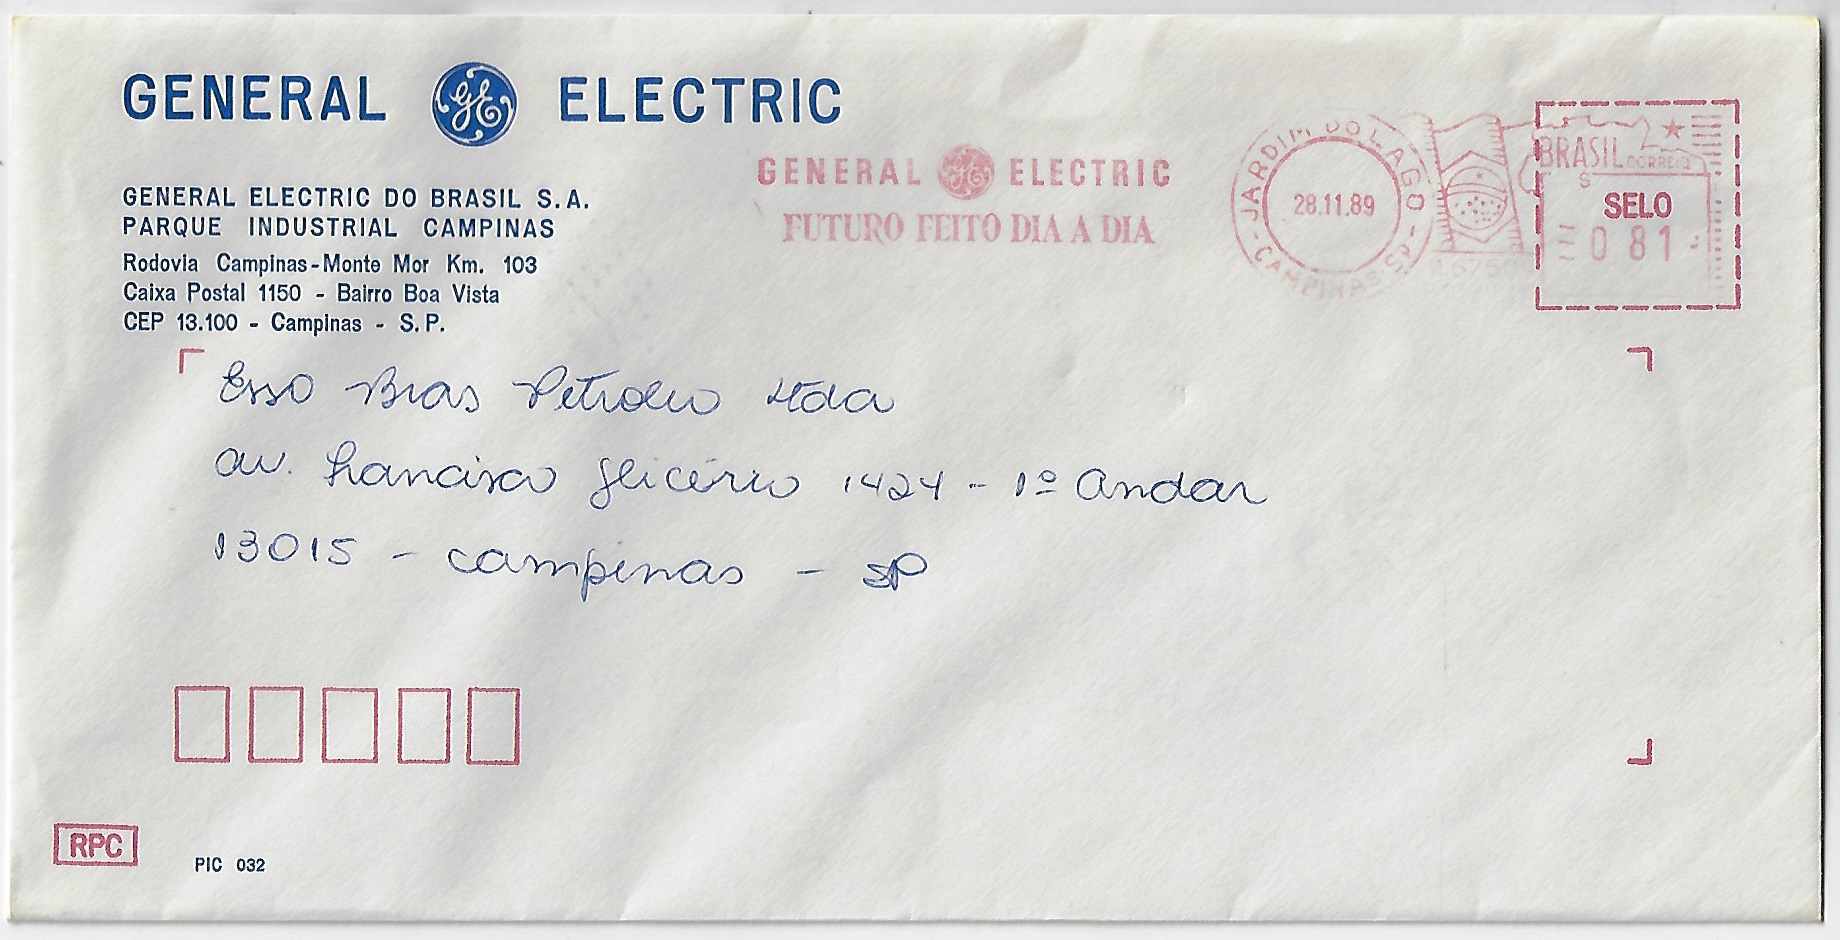 GENERAL GE ELECTRIC
GENERAL ELECTRIC DO BRASIL S.A.
PARQUE INDUSTRIAL CAMPINAS
Rodovia Campinas-Monte Mor Km. 103
Caixa Postal 1150 - Bairro Boa Vista
CEP 13.100 - Campinas - S.P.
GENERAL GE ELECTRIC
FUTURO FEITO DIA A DIA
JARDIM DO LAGO
28.11.89
- CAMPINAS-SP -
BRASIL CORREIO
SELO
0 81
Esso Bras Petroleo Ltda
av. Francisco Glicério 1424 - 1º Andar
13015 - Campinas - SP
RPC
PIC 032